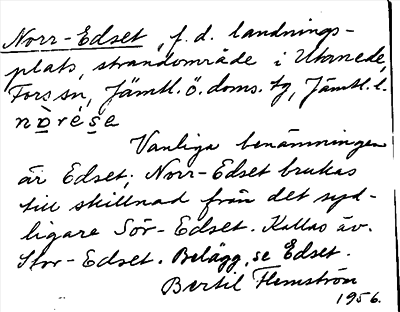 Norr-Edset, f.d. landnings-
plats, strandområde i Utanede,
Fors sn, Jämtl. ö. doms. tg, Jämtl. l.
nòrése
Vanliga benämningen
är Edset; Norr-Edset brukas
till skillnad från det syd-
ligare Sör-Edset. Kallas äv.
Stor-Edset. Belägg, se Edset.
Bertil Flemström
1956.